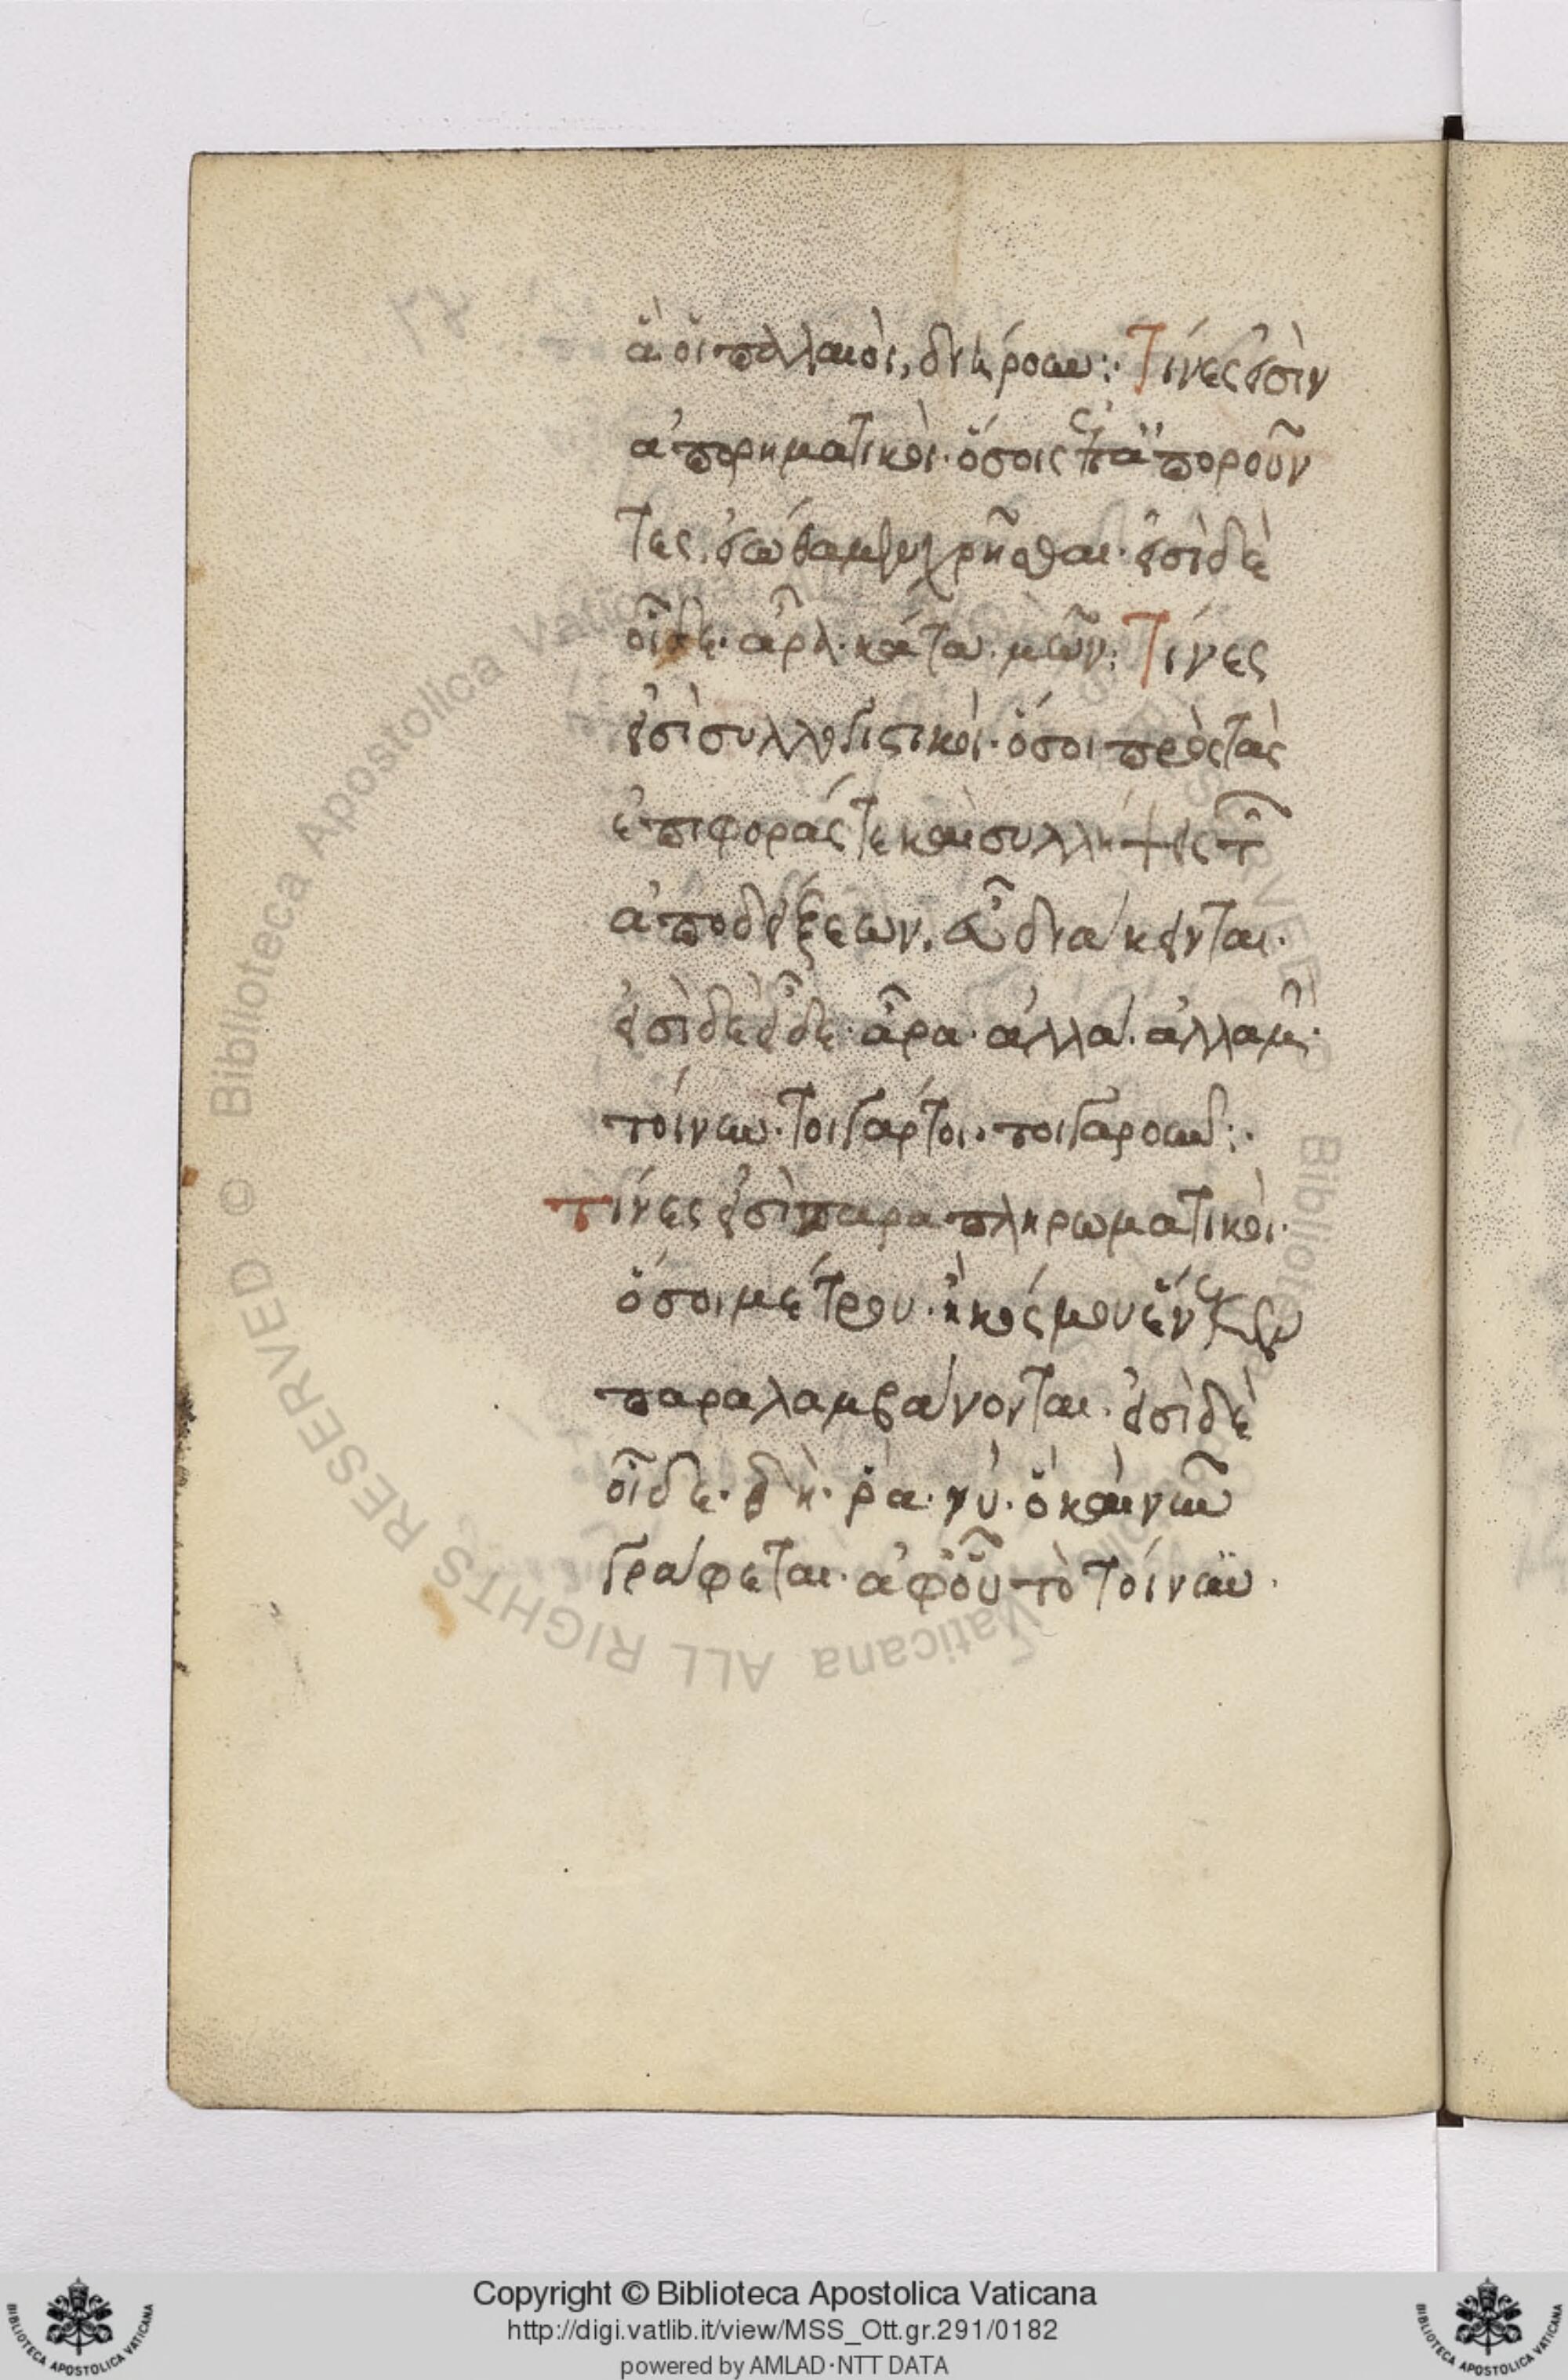 ἃ οἱ παλαιοὶ, διήρουν:· Τίνες εἰσὶν
ἀπορηματικοί· ὅσοις ἐπαποροῦν
τες εἰώθαμεν χρῆσθαι· εἰσὶ δὲ
οἵδε· ἆρα· κᾆτα· μῶν: Τίνες
εἰσὶ συλλογιστικοί· ὅσοι πρὸς τὰς
ἐπιφοράς τε καὶ συλλήψεις τῶν
ἀποδείξεων, εὖ διάκεινται·
εἰσὶ δὲ οἵδε· ἄρα· ἀλλά· ἀλλαμήν·
τοίνυν· τοιγάρτοι· τοιγαροῦν:·
Τίνες εἰσὶ παραπληρωματικοί·
ὅσοι μέτρου ἢ κόσμου ἕνεκεν
παραλαμβάνονται· εἰσὶ δὲ
οἵδε· δή· ῥα· νύ· ὃ καὶ νῦν
γράφεται· ἀφοὗ τὸ τοίνυν·
Copyright © Biblioteca Apostolica Vaticana
http://digi.vatlib.it/view/MSS_Ott.gr.291/0182
powered by AMLAD·NTT DATA